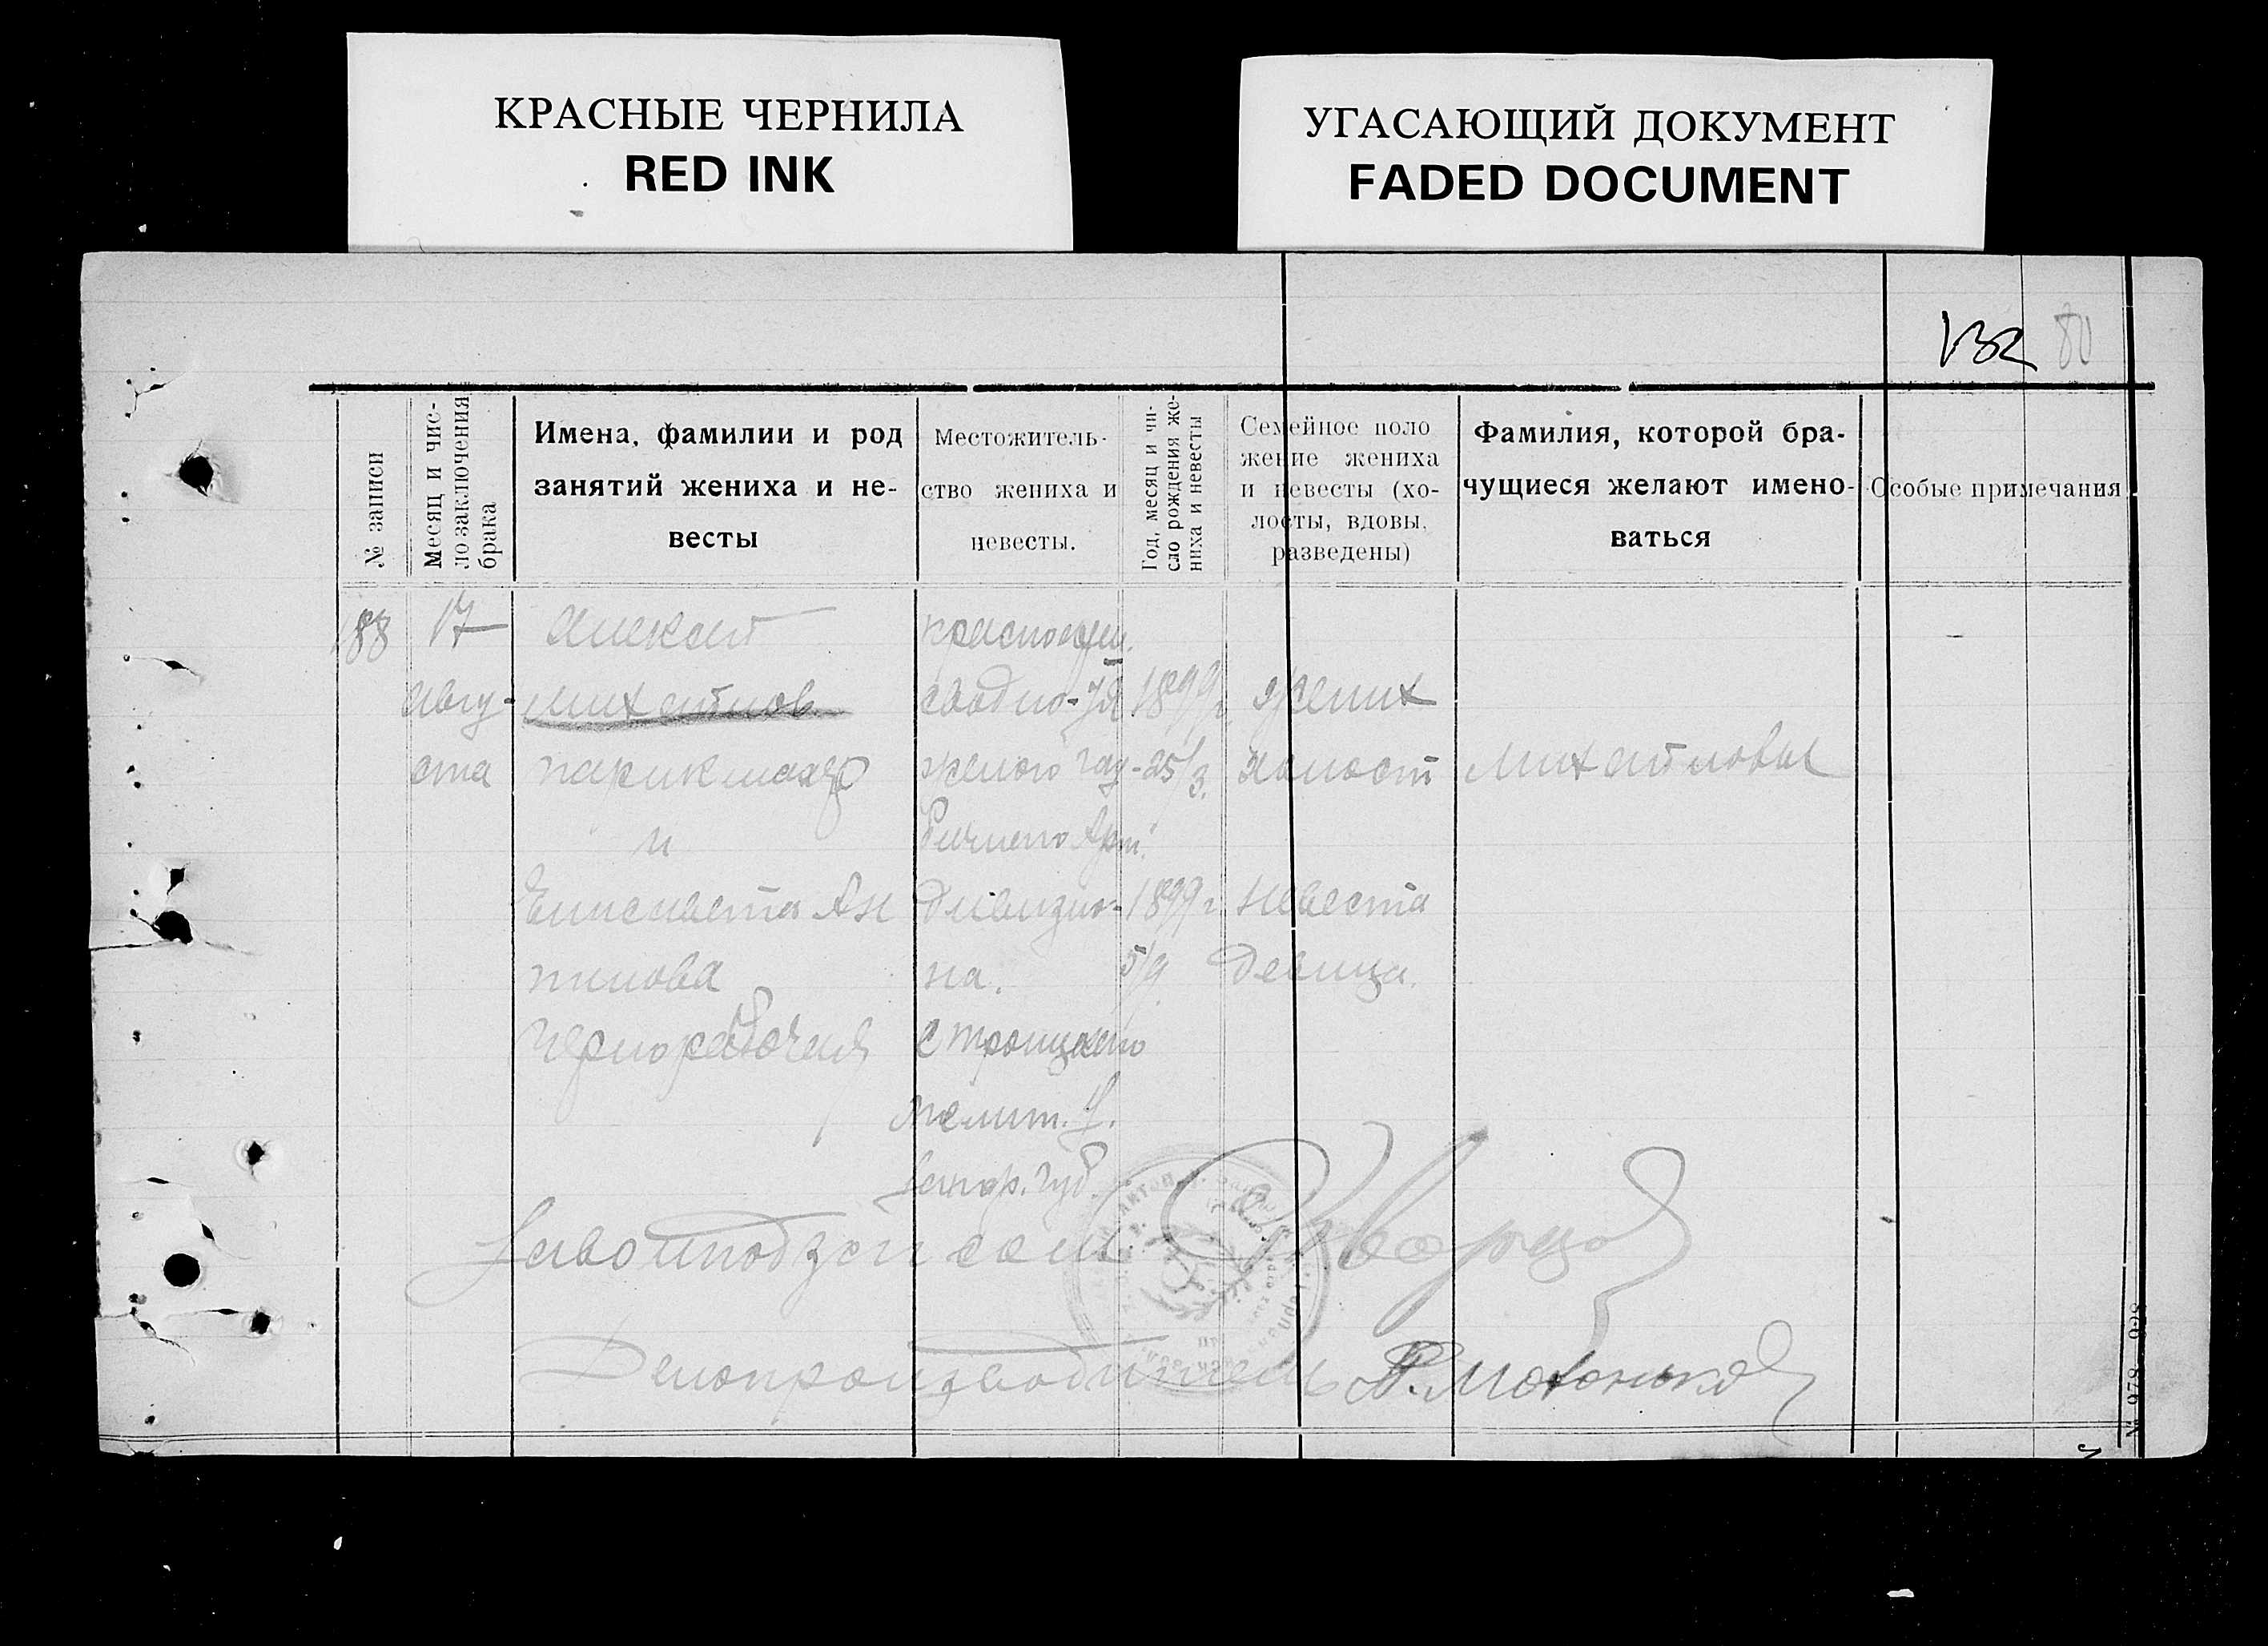 КРАСНЫЕ ЧЕРНИЛА
RED INK
УГАСАЮЩИЙ ДОКУМЕНТ
FADED DOCUMENT
132 80
№ записи
Месяц и чис-
ло заключения
брака
Имена, фамилии и род
занятий жениха и не-
весты
Местожитель-
ство жениха и
невесты.
Год, месяц и чи-
сло рождения же-
ниха и невесты
Семейное поло
жение жениха
и невесты (хо-
лосты, вдовы,
разведены)
Фамилия, которой бра-
чущиеся желают имено-
ваться
Особые примечания
188 17
Авгу-
ста
Михайлов
парикмахер
и
Елисавета Ан
типова
Чернорабочая
сводно-тя
желого гау-
бичного Арт.
дивизио-
на.
с Троицкого
Мелит. У.
Запор. Губ.
1899 г.
25/3.
1899 г.
5/9
Жених
Холост
Невеста
Девица.
Михайловы
Завотподзагсом
Делопроизводитель
№ 978 928